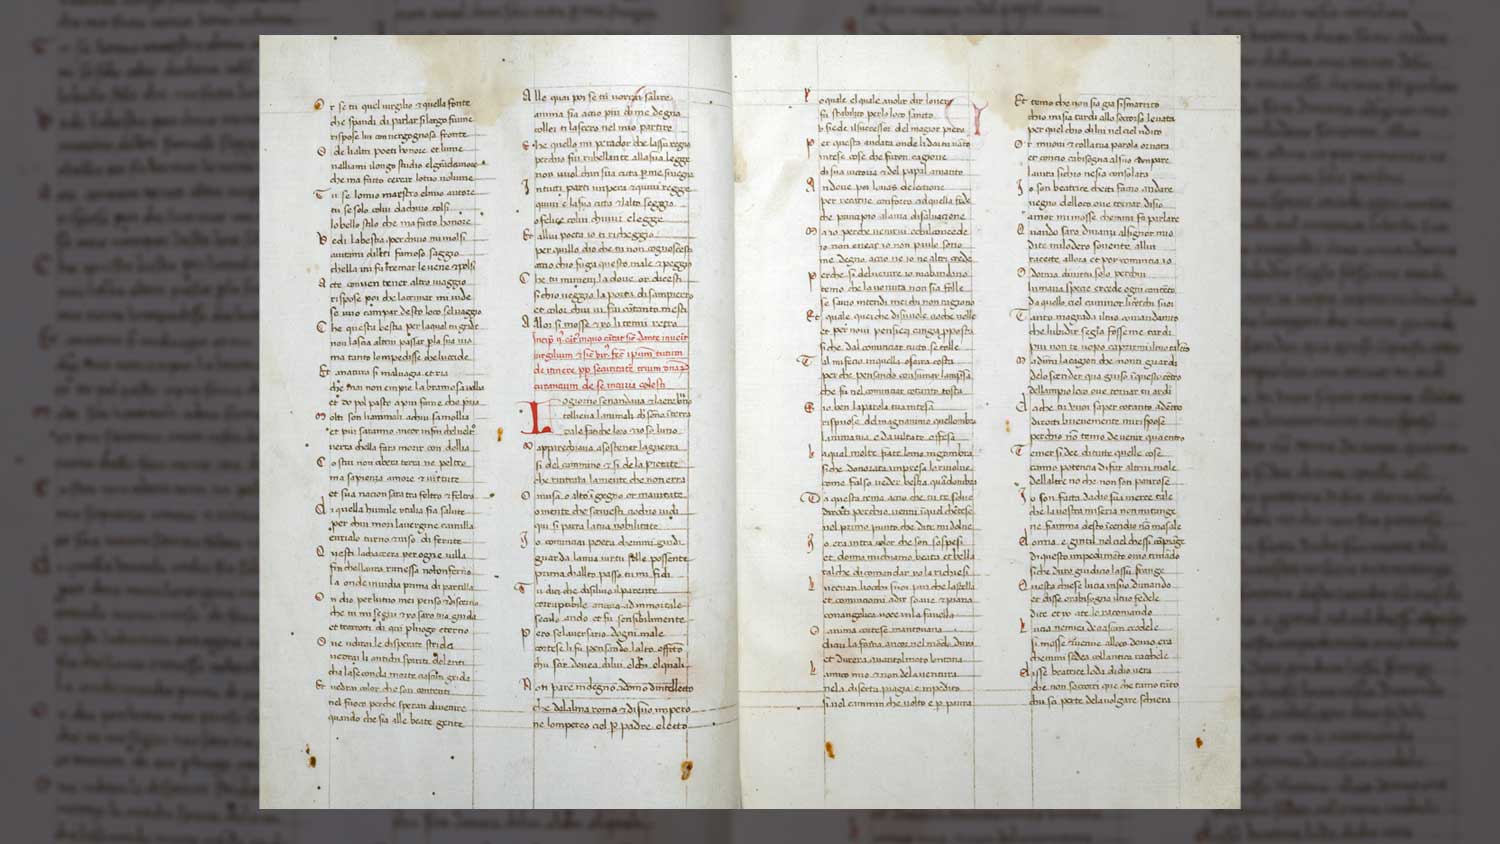 Or se tu quel virgilio & quella fonte
che spandi di parlar si largo fiume
rispose lui con vergognosa fronte
O de lialtri poeti honore et lume
vagliami ilongo studio elgrādamore
che ma facto cercar lotuo volume
Tu se lomio maestro elmio autore
tu se solo colui dachuio tolsi
lo bello stilo che ma facto honore
Vedi labestia perchuio mi volsi
aiutami dallei famoso saggio
chella mi fa tremar le vene & polsi
A te conven tener altro viaggio
rispose poi che lacrimar mi vide
se vuoi campar desto loco selvaggio
Che questa bestia per laqual tu gride
non lascia altrui passar p la sua via
ma tanto lompedisce che luccide
Et anatura si malvagia et ria
che mai non empie la bramosa voglia
et do pol pasto a piu fame che pria
Molti son lianimali achui samoglia
et piu saranno ancor infin chelveltr
verra chella fara morir con doglia
Costui non cibera terra ne peltro
ma sapienza amore & virtute
et sua nacion sara tra feltro & feltro
Di quella humile ytalia fia salute
per chui mori lavergine camilla
eurialo turno & niso di ferute
Questi lachacera per ogne villa
fin chellavra rimessa nelonferno
la onde invidia prima dipartilla
Ondio perlotuo mei penso & discerno
che tu mi segui & yo saro tua guida
et trarroti di qui pluogo eterno
Ove udirai le disperate strida
vedrai li antichi spiriti dolenti
cha laseconda morte ciascun grida
Et vedrai color che son contenti
nel fuoco perche speran di venire
quando che sia alle beate gente
Alle quai poi se tu vorrai salire
anima fia accio piu di me degna
collei ti lascero nel mio partire
Che quello imperador che lassu regna
perchio fui ribellante alla sua legge
non vuol chin sua cita p me sivegna
In tutti parti impera & quivi regge
quivi e lasua citta & lalto seggio
o felice colui chuivi elegge
Et allui poeta io ti richeggio
per quello dio che tu non cognoscesti
accio chio fuga questo male & peggio
Che tu mimeni la dove or dicesti
si chio veggio la porta di sampietro
et color chui tu fai cotanto mesti
Alor si mosse & yo li tenni retro
virgilium
de itinere
Logiorno senandava & laere bruno
toglieva lanimali che sono ī terra
da le fatiche loro & yo solo uno
Mapparechiava asostener laguerra
si del cammino & si de la pietate
che ritrarra lamente che non erra
O musa o alto ingegno or maiutate
o mente che scrivesti cio chio vidi
qui si parra latua nobilitate
Io cominciai poeta chemmi guidi
guarda lamia virtu sella possente
prima challto passo tu mi fidi
Tu dici che disilvio ilparente
corruptibile ancora ad immortale
secolo ando et fu sensibilmente
Pero selaversario dogni male
cortese li fu pensando lalto effetto
chu scir dovea dilui elchi elquali
Non pare indegno adomo dintellecto
che delalma roma & disuo impero
ne lompereo ciel p padre electo
Loquale elquale avoler dir lovero
fu stabilito perlo loco sancto
v siede ilsuccessor del magior piero
Per questa andata onde li dai tu vanto
intese cose che furon cagione
di sua victoria & del papal amanto
Andovi poi lovas delectione
per recarne conforto ad quella fede
che principio alavia disalvacione
Ma io perche venirvi ochilconcede
io non eneas io non paulo sono
me degno accio ne io ne altri crede
Perche si del venire io mabandono
temo che la venuta non sia folle
se savio intendi mei chi non ragiono
Et quale quei che disvuole cio che volle
et per novi pensier cangia pposta
si che dal cominciar tutto se tolle
Tal mifecio inquella oscura costa
per che pensando consumai lampresa
che fu nel cominciar cotanto tosta
Se io ben laparola tua intesa
rispuose delmagnanimo quellombra
lanima tua e da viltate offesa
La qual molte fiate lomo ingombra
si che donorata impresa lo rivolve
come falso veder bestia quādombra
Da questa tema accio che tu te solve
diroti perchio venni & quel chintese
nel primo punto che dite mi dolve
Io era intra color che son sospesi
et donna mi chiamo beata et bella
tal che dicomandar yo la richiesi
Lucevan liocchi suoi piu che lastella
et cominciomi adir soave & piana
con angelica voce in sua favella
O anima cortese mantoana
di cui la fama ancor nel mondo dura
et durera quantolmoto lontana
Lamico mio & non dela ventura
nela diserta piagia e impedito
si nel cammin che volto e p paura
Et temo che non sia gia si smarrito
chio mi sia tardi allo soccorso levata
per quel chio dilui nel ciel udito
Or muovi & collatua parola ornata
et concio cabisogna alsuo campare
laiuta sichio nesia consolata
Io son beatrice cheti faccio andare
vegno delloco ove tornar disio
amor mi mosse chemmi fa parlare
Quando saro dinanzi alsignor mio
di te mi lodero sovente allui
tacette allora et poi comincia io
O donna divirtu sola perchui
lumana specie excede ogni contento
da quello ciel cha minor licerchi sui
Tanto magrada iltuo comandamento
che lubidir segia fosse me tardi
piu non te vopo caprirmi iltuo talento
Madimi lacagion che nonti guardi
delo scender qua giuso ī questo cētro
dellampio loco ove tornar tu ardi
Da che tu vuoi saper cotanto adentro
diroti brievemente mi rispose
perchio nō temo devenir qua entro
Temer si dee ditutte quelle cose
canno potencia di far altrui male
dellaltre no che non son paurose
Io son facta dadio sua merce tale
che la vostra miseria non mitange
ne fiamma desto incendio nō masale
Donna e gentil nel ciel chessi cōpiange
di questo impedimento ovio timādo
si che duro giudicio lassu frange
Questa chiese lucia insuo dimando
et disse orabisogna iltuo fedele
di te et yo a te lo racomando
Lucia nemica de ciascun crudele
si mosse & venne alloco dovio era
chemmi sedea collantica rachele
Disse beatrice loda didio vera
che non soccorri que che tamo tāto
chu sci per te dela volgare schiera